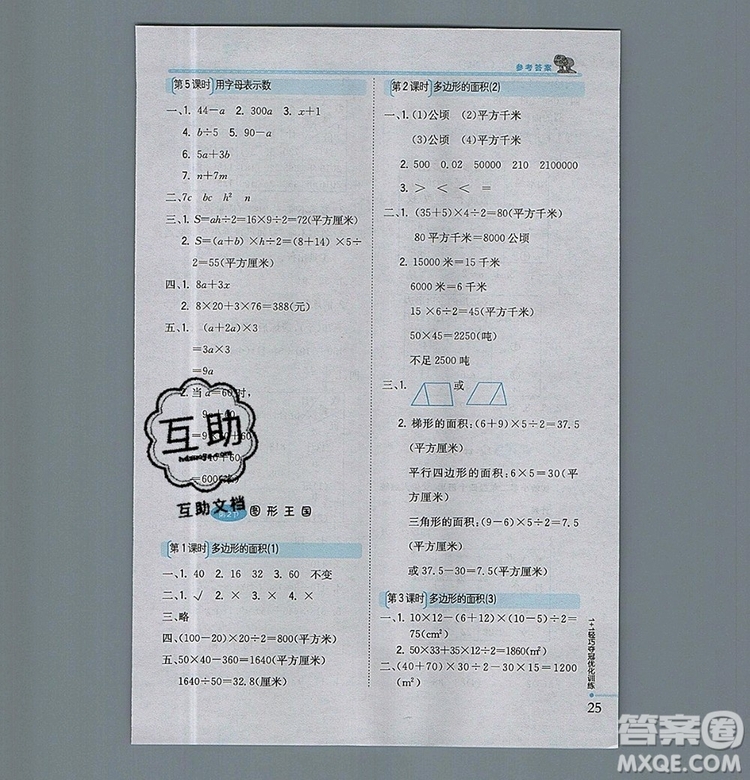 参考答案
第5课时 用字母表示数
一、1. 44－a 2. 300a 3. x＋1
4. b÷5 5. 90－a
6. 5a＋3b
7. n＋7m
二、7c bc h² n
三、1. S=ah÷2=16×9÷2=72(平方厘米)
2. S=(a＋b)×h÷2=(8＋14)×5÷
2=55(平方厘米)
四、1. 8a＋3x
2. 8×20＋3×76=388(元)
五、1. (a＋2a)×3
=3a×3
=9a
2. 当a=60时,
9
=600
互助
互助文档
图形王国
第1课时 多边形的面积(1)
一、1. 40 2. 16 32 3. 60 不变
二、1. √ 2. × 3. × 4. ×
三、略
四、(100－20)×20÷2=800(平方米)
五、50×40－360=1640(平方厘米)
1640÷50=32.8(厘米)
第2课时 多边形的面积(2)
一、1. (1)公顷 (2)平方千米
(3)公顷 (4)平方千米
2. 500 0.02 50000 210 2100000
3. ＞ ＜ ＜ =
二、1. (35＋5)×4÷2=80(平方千米)
80平方千米=8000公顷
2. 15000米=15千米
6000米=6千米
15×6÷2=45(平方千米)
50×45=2250(吨)
不足2500吨
三、1. 或
2. 梯形的面积:(6＋9)×5÷2=37.5
(平方厘米)
平行四边形的面积:6×5=30(平
方厘米)
三角形的面积:(9－6)×5÷2=7.5
(平方厘米)
或37.5－30=7.5(平方厘米)
第3课时 多边形的面积(3)
一、1. 10×12－(6＋12)×(10－5)÷2=
75(cm²)
2. 50×33＋35×12÷2=1860(m²)
二、(40＋70)×30÷2－15×30=1200
(m²)
1+1轻巧夺冠优化训练
25
答案圈
MXQE.COM